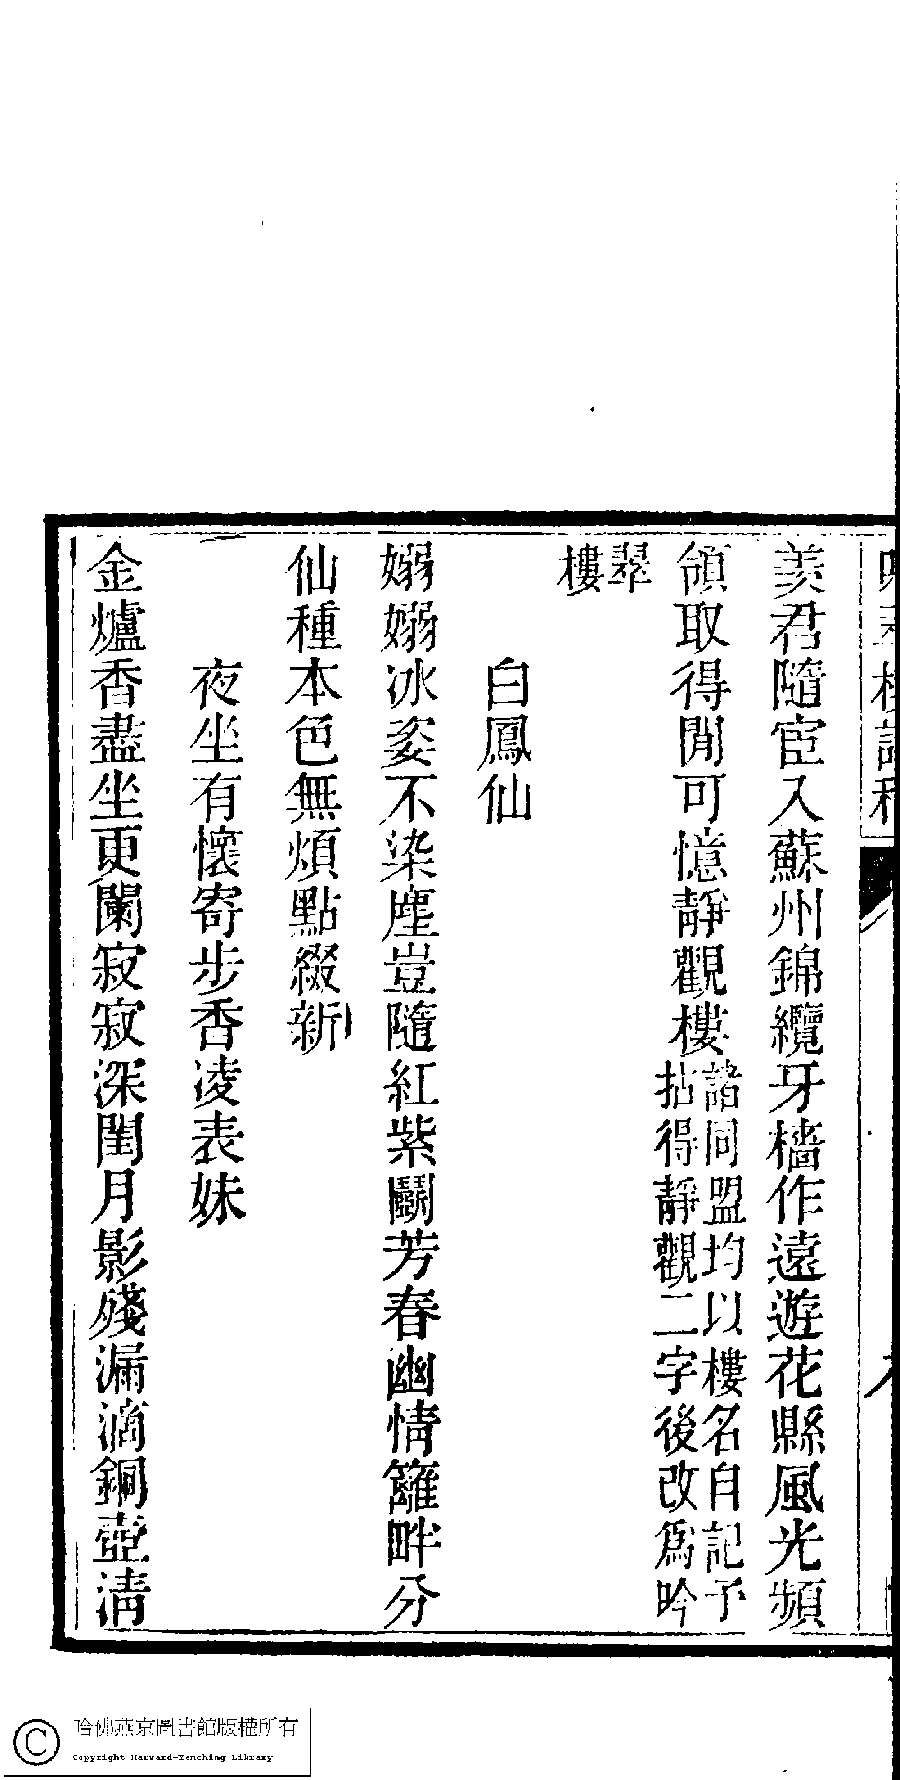 羨君隨宦入蘇州錦纜牙檣作遠遊花縣風光頻
領取得閒可憶靜觀樓諸同盟均以樓名自記予
拈得靜觀二字後改為吟
翠
樓
白鳳仙
嫋嫋冰姿不染塵豈隨紅紫鬭芳春幽情籬畔分
仙種本色無煩點綴新
夜坐有懷寄步香凌表妹
金爐香盡坐更闌寂寂深閨月影殘漏滴銅壺清
哈佛燕京圖書館版權所有
Copyright Harvard-Yenching Library